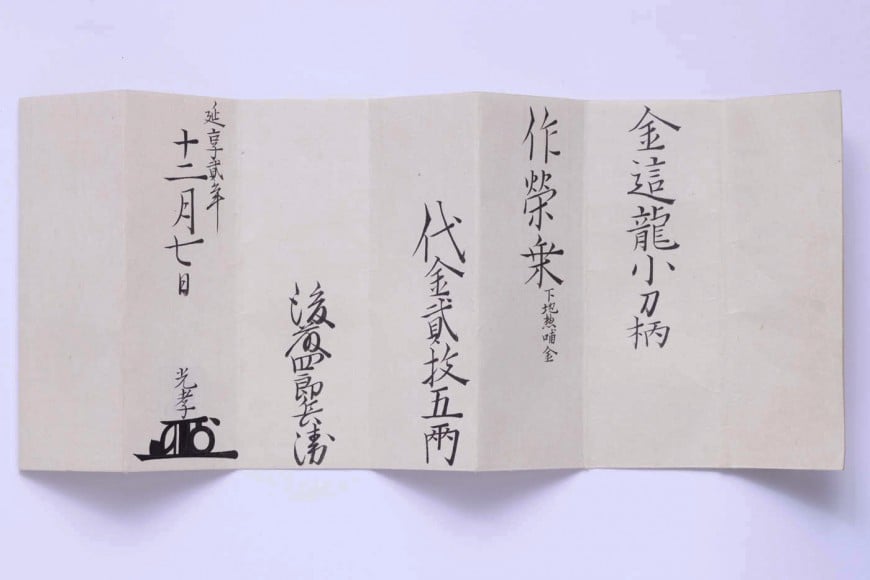 金這龍小刀柄
作榮乗
下地哺金
代金貳枚五兩
後藤四郎兵衛
延享貳年
十二月七日
光孝